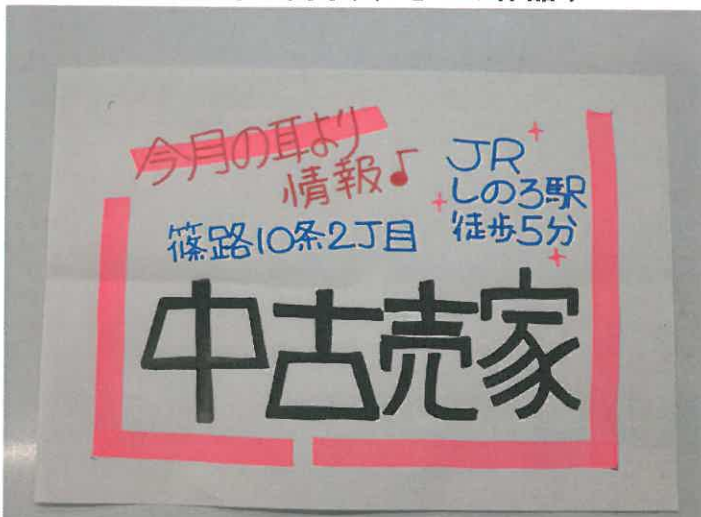 今月の耳より
情報♪
JR
しのろ駅
徒歩5分
篠路10条2丁目
中古売家